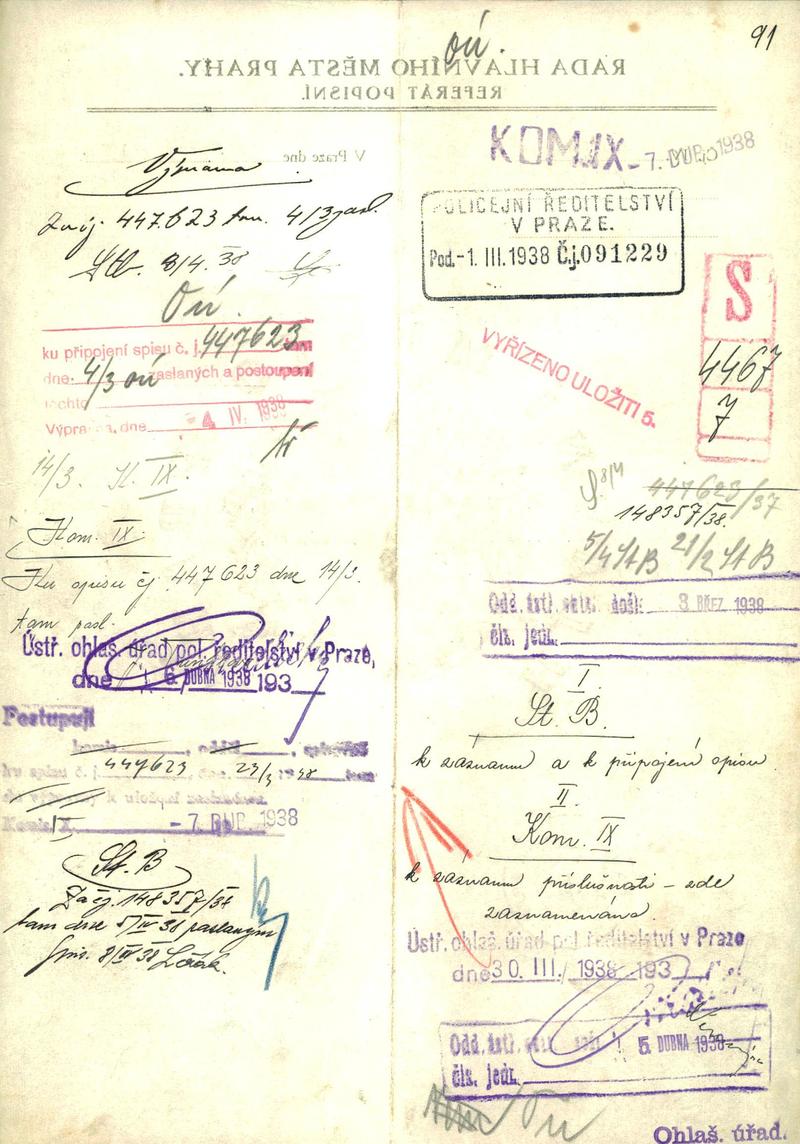 91
oú.
RADA HLAVNÍHO MĚSTA PRAHY.
REFERÁT POPISNÍ.
V Praze dne
447.623 4/3
8/4. 38
Oú.
ku připojení spisu č. j. 447623
dne 4/3 oú zaslaných a postoupení
těchto
Výprava, dne 4 IV. 1938
14/3. K. IX.
Kom. IX.
Ku opisu čj 447623 dne 14/3.
tam zasl.
Ústř. ohlaš. úřad pol. ředitelství v Praze,
dne 6. DUBNA 1938 193
Postupuji
ku spisu č. j. 447623, dne 23/3 1938
k uložení
Komis. IX. - 7. DUB. 1938
St. B
Za čj. 148357/38
tam dne 5/IV 38 zaslaným
8/IV 38
KOM. IX - 7. DUB. 1938
POLICEJNÍ ŘEDITELSTVÍ
V PRAZE.
Pod. -1. III. 1938 Č.j. 091229
S
4467
7
VYŘÍZENO ULOŽITI 5.
8/4
447623/37
148357/38.
5/4 St B 21/2 St B
Odd. došlo 8 BŘEZ. 1938
čís. jedn.
I.
St. B.
k záznamu a k připojení opisu.
II.
Kom. IX
k záznamu příslušnosti – zde
zaznamenána.
Ústř. ohlaš. úřad pol. ředitelství v Praze
dne 30. III. 1938 193
Odd. 5. DUBNA 1938
čís. jedn.
Oú
Ohlaš. úřad.